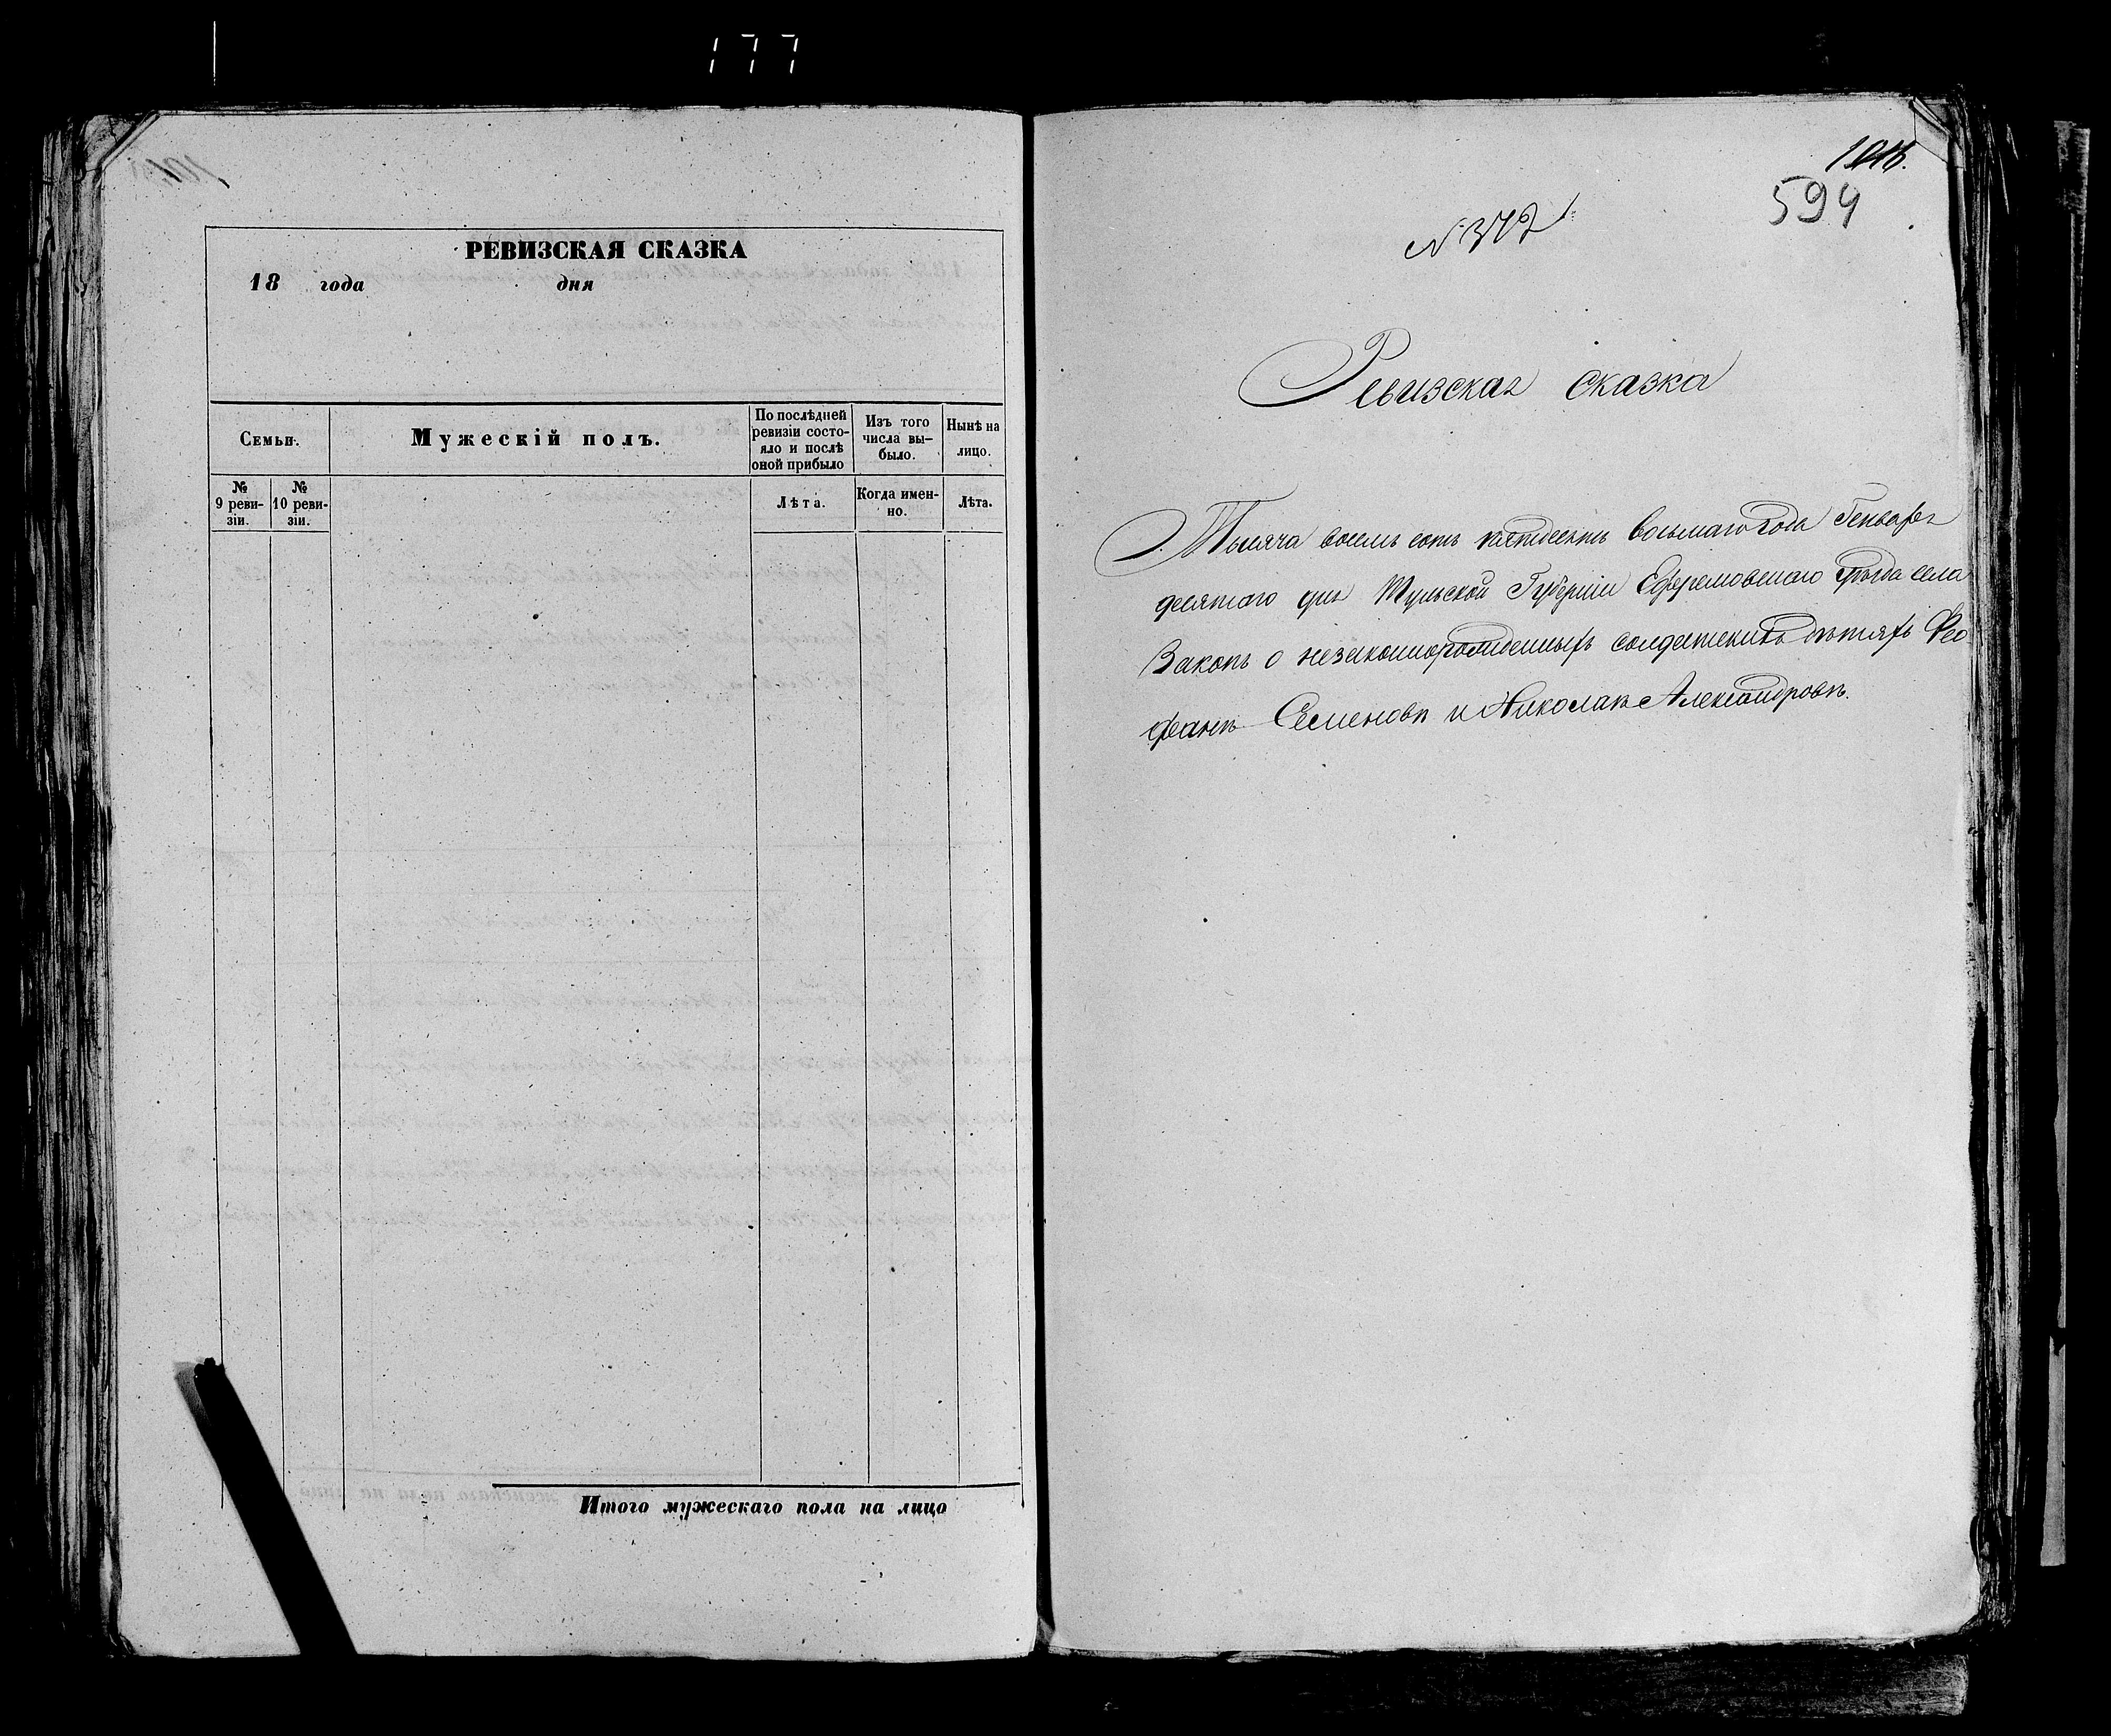 177
РЕВИЗСКАЯ СКАЗКА
18 года дня
Семьи.
Мужескій полъ.
По послѣдней ревизіи состо-яло и послѣ оной прибыло
Изъ того числа вы-было.
Нынѣ на лицо.
№ 9 реви-зіи.
№ 10 реви-зіи.
Лѣта.
Когда имен-но.
Лѣта.
Итого мужескаго пола на лицо
594
N 372
Ревизская сказка
Тысяча восемь сотъ пятдесятъ восьмаго года Генваря
десятаго дня Тульской Губерніи Ефремовскаго уѣзда села
Закопъ о незаконнорожденныхъ солдатскихъ дѣтяхъ Фео
фанѣ Семеновѣ и Николаѣ Александровѣ.